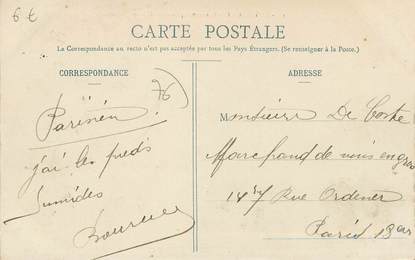 6 €
CARTE POSTALE
La Correspondance au recto n'est pas acceptée par tous les Pays Étrangers. (Se renseigner à la Poste.)
CORRESPONDANCE
76
j'ai les pieds
humides
ADRESSE
Monsieur De
Marchand de vins en gros
Rue Ordener
Paris 18